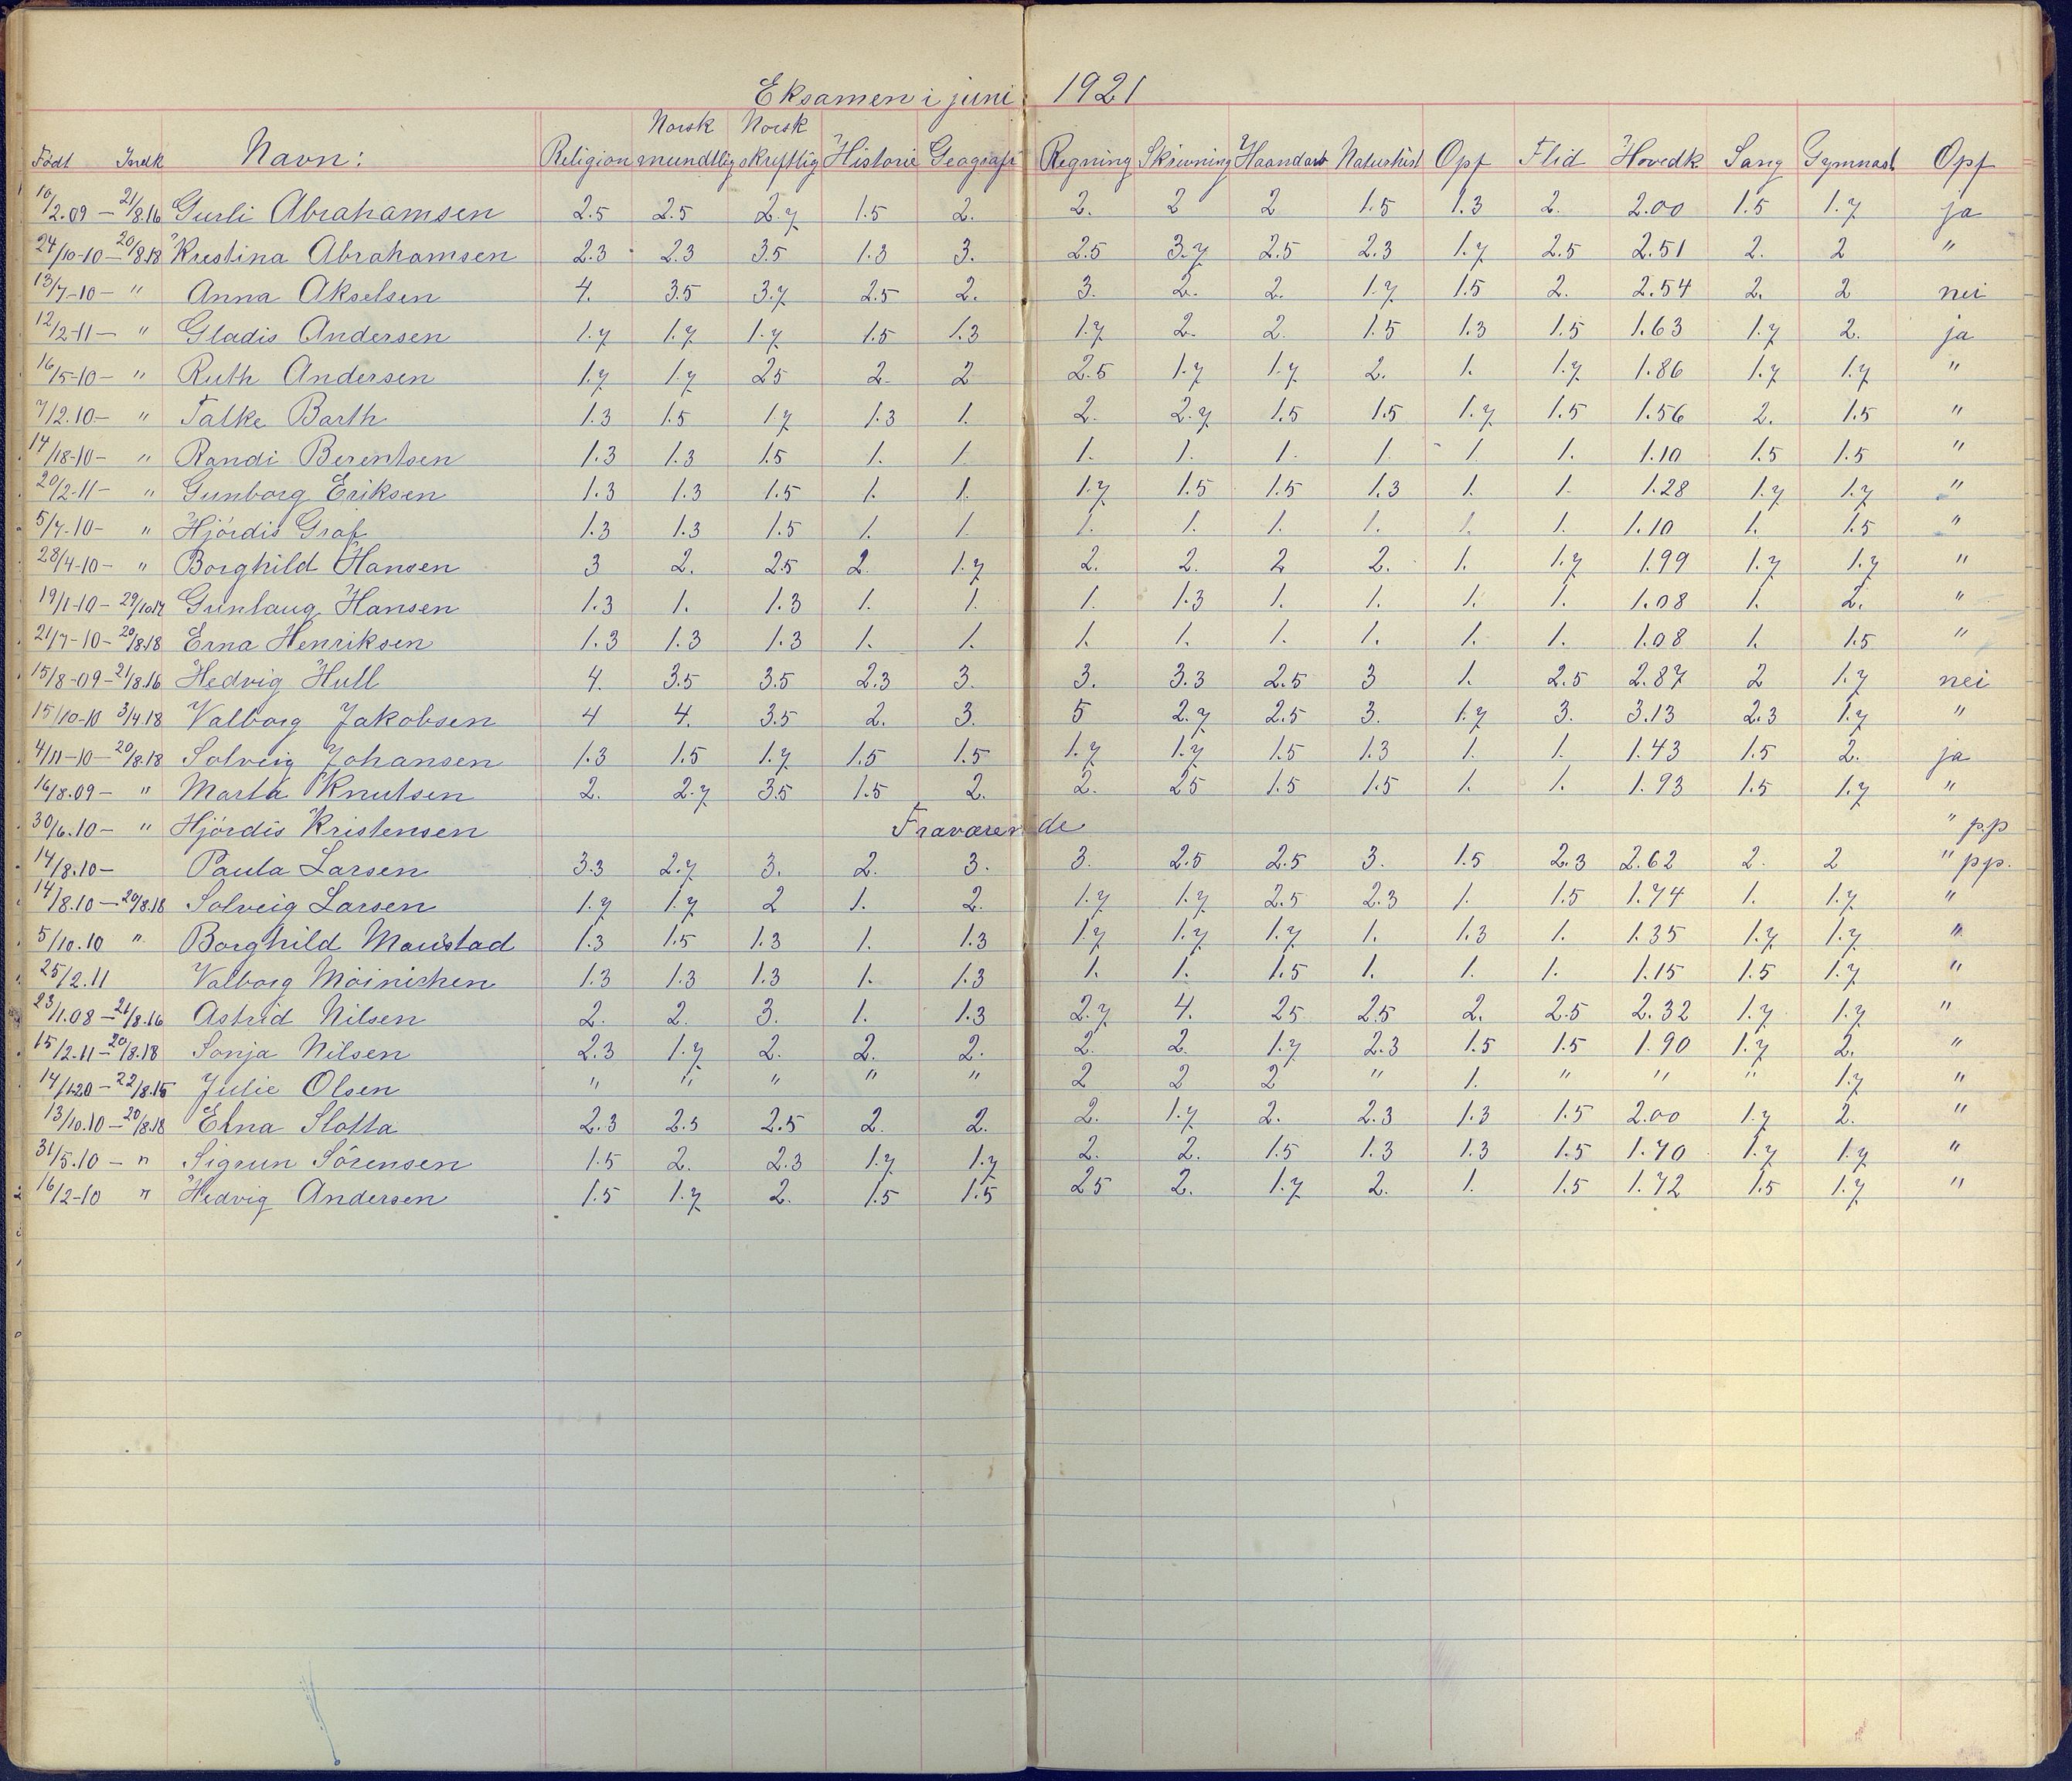 Eksamen i juni 1921
Norsk Norsk
Født Indk Navn: Religion mundtlig skriftlig Historie Geografi Regning Skrivning Haandarb Naturhist Opf Flid Hovedk Sang Gymnast Opf
10/2.09 — 21/8.16 Gurli Abrahamsen 2.5 2.5 2.7 1.5 2. 2. 2 2 1.5 1.3 2. 2.00 1.5 1.7 ja
24/10-10 — 20/8.18 Kristina Abrahamsen 2.3 2.3 3.5 1.3 3. 2.5 3.7 2.5 2.3 1.7 2.5 2.51 2. 2 "
13/7-10 — " Anna Akselsen 4. 3.5 3.7 2.5 2. 3. 2. 2. 1.7 1.5 2. 2.54 2. 2 nei
12/2-11 — " Gladis Andersen 1.7 1.7 1.7 1.5 1.3 1.7 2. 2. 1.5 1.3 1.5 1.63 1.7 2. ja
16/5-10 — " Ruth Andersen 1.7 1.7 25 2. 2 2.5 1.7 1.7 2. 1. 1.7 1.86 1.7 1.7 "
7/2.10 — " Talke Barth 1.3 1.5 1.7 1.3 1. 2. 2.7 1.5 1.5 1.7 1.5 1.56 2. 1.5 "
14/18-10 — " Randi Berentsen 1.3 1.3 1.5 1. 1. 1. 1. 1. 1. 1. 1. 1.10 1.5 1.5 "
20/2-11 — " Gunborg Eriksen 1.3 1.3 1.5 1. 1. 1.7 1.5 1.5 1.3 1. 1. 1.28 1.7 1.7 "
5/7-10 — " Hjördis Graf 1.3 1.3 1.5 1. 1. 1. 1. 1. 1. 1. 1. 1.10 1. 1.5 "
28/4-10 — " Borghild Hansen 3 2. 25 2. 1.7 2. 2. 2 2. 1. 1.7 1.99 1.7 1.7 "
19/1-10 — 29/10.17 Gunlaug Hansen 1.3 1. 1.3 1. 1. 1. 1.3 1. 1. 1. 1. 1.08 1. 2. "
21/7-10 — 20/8.18 Erna Henriksen 1.3 1.3 1.3 1. 1. 1. 1. 1. 1. 1. 1. 1.08 1. 1.5 "
15/8-09 — 21/8.16 Hedvig Hull 4. 3.5 3.5 2.3 3. 3. 3.3 2.5 3 1. 2.5 2.87 2 1.7 nei
15/10-10 3/4.18 Valborg Jakobsen 4 4. 3.5 2. 3. 5 2.7 2.5 3. 1.7 3. 3.13 2.3 1.7 "
4/11-10 — 20/8.18 Solveig Johansen 1.3 1.5 1.7 1.5 1.5 1.7 1.7 1.5 1.3 1. 1. 1.43 1.5 2. ja
16/8.09 — " Marta Knutsen 2. 2.7 3.5 1.5 2. 2. 25 1.5 1.5 1. 1. 1.93 1.5 1.7 "
30/6.10 — " Hjördis Kristensen Fraværende " p.p
14/8.10 — Paula Larsen 3.3 2.7 3. 2. 3. 3. 2.5 2.5 3. 1.5 2.3 2.62 2. 2 " pp.
14/8.10 — 20/8.18 Solveig Larsen 1.7 1.7 2 1. 2. 1.7 1.7 2.5 2.3 1. 1.5 1.74 1. 1.7 "
5/10.10 " Borghild Maustad 1.3 1.5 1.3 1. 1.3 1.7 1.7 1.7 1. 1.3 1. 1.35 1.7 1.7 "
25/2.11 Valborg Möinichen 1.3 1.3 1.3 1. 1.3 1. 1. 1.5 1. 1. 1. 1.15 1.5 1.7 "
23/1.08 — 21/8.16 Astrid Nilsen 2. 2. 3. 1. 1.3 2.7 4. 25 25 2. 2.5 2.32 1.7 1.7 "
15/2.11 — 20/8.18 Sonja Nilsen 2.3 1.7 2. 2. 2. 2. 2. 1.7 2.3 1.5 1.5 1.90 1.7 2. "
14/1.20 — 22/8.15 Julie Olsen " " " " " 2 2 2 " 1. " " " 1.7 "
13/10.10 — 20/8.18 Elna Slotta 2.3 2.5 2.5 2. 2. 2. 1.7 2. 2.3 1.3 1.5 2.00 1.7 2. "
31/5.10 — " Sigrun Sörensen 1.5 2. 2.3 1.7 1.7 2. 2. 1.5 1.3 1.3 1.5 1.70 1.7 1.7 "
16/2-10 " Hedvig Andersen 1.5 1.7 2. 1.5 1.5 25 2. 1.7 2. 1. 1.5 1.72 1.5 1.7 "